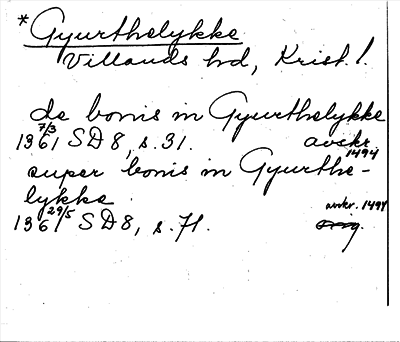 * Gyurthelykke
Villands hd, Krist. l.
de bonis in Gyurthelykke
1361 7/3 SD 8, s. 31. avskr. 1494
super bonis in Gyurthe-
lykke.
1361 29/5 SD 8, s. 71. avskr. 1494